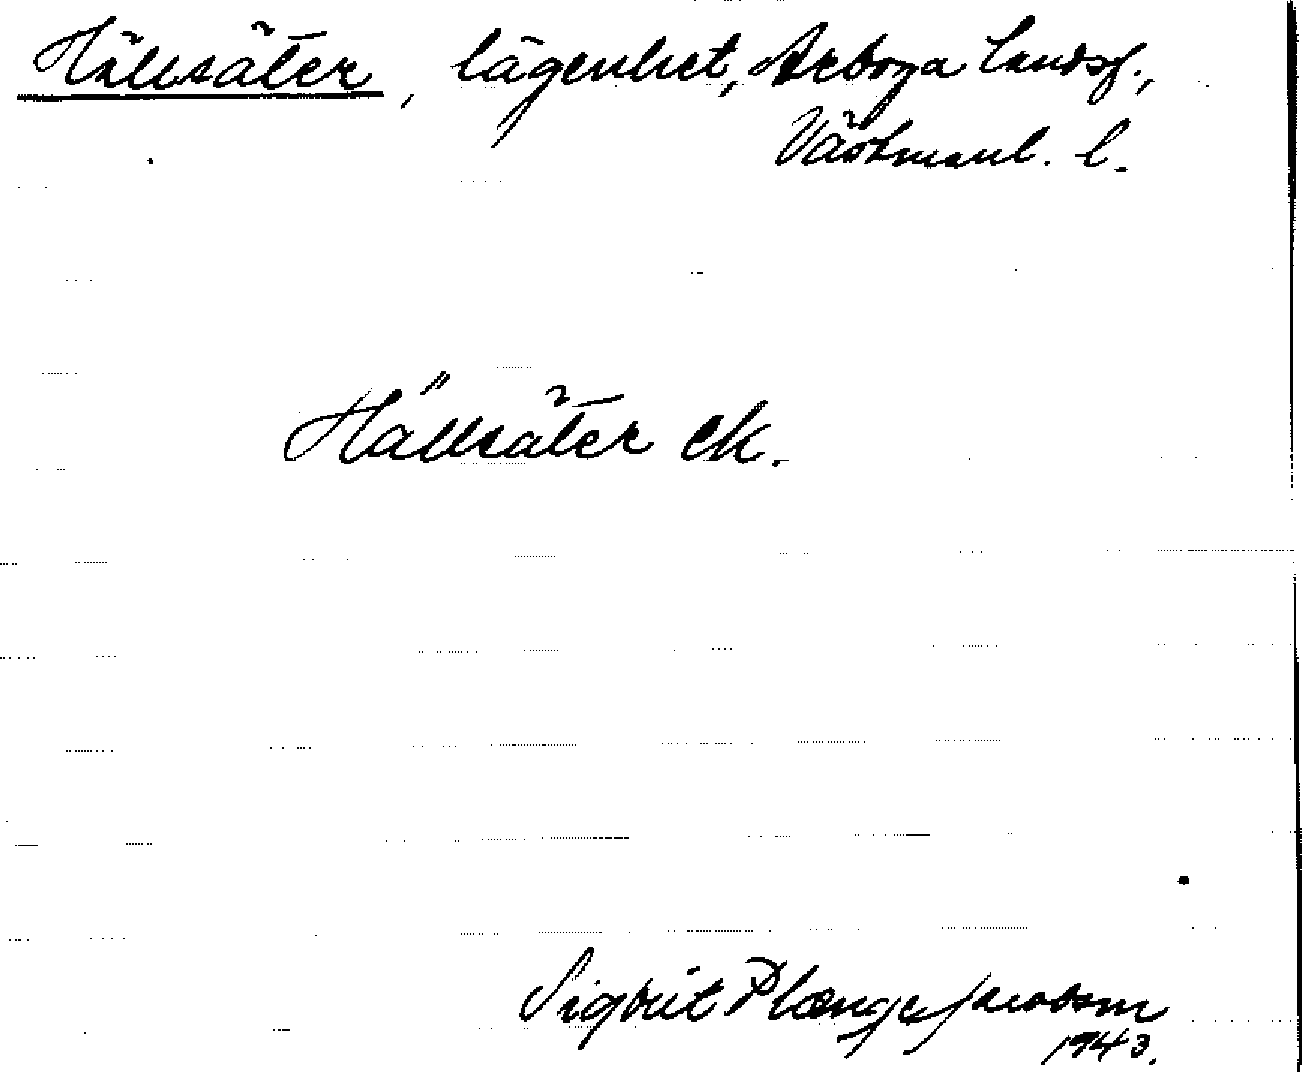 Hällsäter, lägenhet, Arboga landsf.,
Västmanl. l.
Hällsäter ek.
Sigbrit Plænge Jacobson
1943.